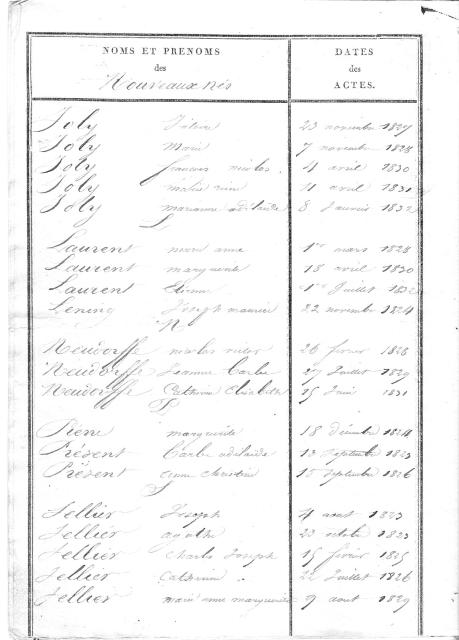 NOMS ET PRENOMS
des
Nouveaux nés
DATES
des
ACTES.
Joly 23 novembre 1827
Joly Marie 7 novembre 1828
Joly francois nicolas 4 avril 1830
Joly 11 avril 1831
Joly marianne adélaide 8 Janvier 1832
L
Laurent marie anne 1er mars 1828
Laurent marguerite 18 avril 1830
Laurent Etienne 1er Juillet 1832
Lening Joseph maurice 22 novembre 1824
N
Neudorffe nicolas 26 fevrier 1828
Neudorffe Jeanne Barbe 27 Juillet 1829
Neudorffe Catherine Elisabeth 15 Juin 1831
P
Péré marguerite 18 décembre 1824
Présent Barbe adélaide 13 Septembre 1823
Présent anne christine 15 Septembre 1826
S
Sellier Joseph 4 aout 1823
Sellier agathe 23 octobre 1823
Sellier Charles Joseph 15 fevrier 1825
Sellier Catherine 22 Juillet 1826
Sellier marie anne marguerite 9 aout 1829